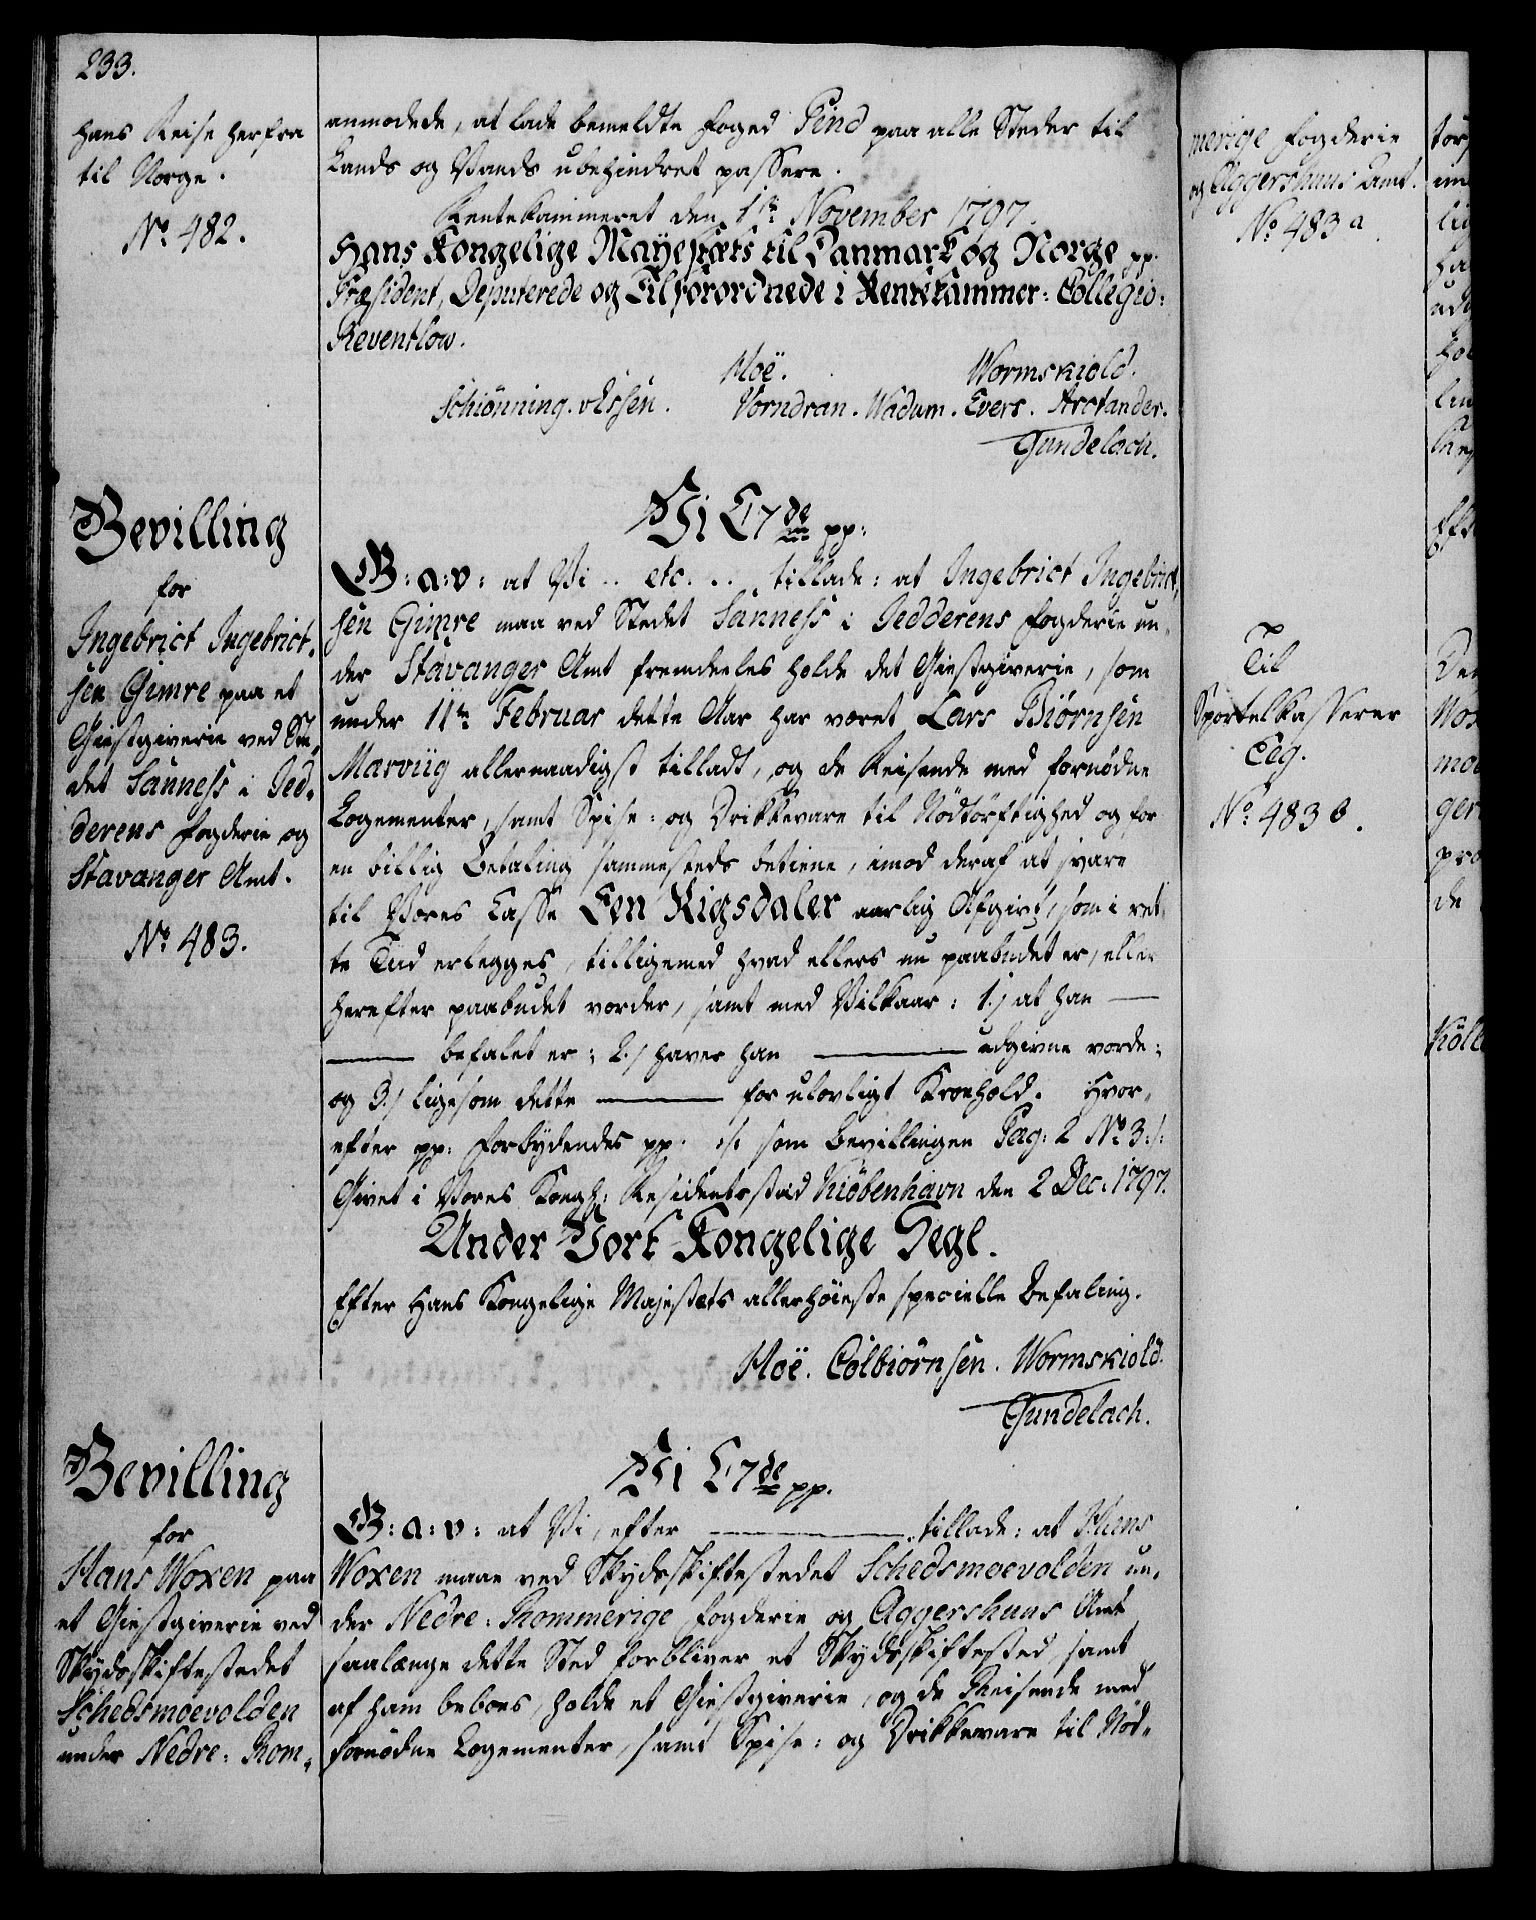 233.
hans Reise herfra
til Norge.
No. 482.
anmodede, at lade bemeldte Foged Pind paa alle Steder til
Lands og Vands ubehindret passere.
Rentekammeret den 1te November 1797.
Hans Kongelige Mayestæts til Danmark og Norge pp.
Præsident, Deputerede og Tilforordnede i Rentekammer-Collegio:
Reventlow.
Hoë. Wormskiold.
Schiönning. vEssen. Vorndran. Wadum. Evers. Arctander.
Gundelach.
Bevilling
for
Ingebrict Ingebrict-
sen Gimre paa et
Giestgiverie ved Ste-
det Sanness i Jed-
derens Fogderie og
Stavanger Amt.
No. 483.
Vi C 7de pp:
G: a: v: at Vi .. etc. .. tillade: at Ingebrict Ingebrict-
sen Gimre maa ved Stedet Sanness i Jedderens Fogderie un-
der Stavanger Amt fremdeeles holde det Giestgiverie, som
under 11te Februar dette Aar har været Lars Biörnsen
Marviig allernaadigst tilladt, og de Reisende med fornødne
Logementer, samt Spise- og Drikkevare til Nödtörftighed og for
en billig Betaling sammesteds betiene, imod deraf at svare
til Vores Casse Een Rigsdaler aarlig Afgivt, som i ret-
te Tiid erlegges, tilligemed hvad ellers nu paabudet er, eller
herefter paabudet vorder, samt med Vilkaar: 1.) at han ——
—— befalet er; 2.) haver han —— udgivne vorde;
og 3.) ligesom dette —— for ulovligt Kroehold. Hvor-
efter pp: Forbydendes pp. /: som Bevillingen Pag: 2 No 3:/:
Givet i Vores Kongl: Residentsstad Kiöbenhavn den 2 Dec. 1797.
Under Vort Kongelige Segl.
Efter Hans Kongelige Majestæts allerhöieste specielle Befaling.
Hoë. Colbiörnsen. Wormskiold.
Gundelach.
Bevilling
for
Hans Woxen paa
et Giestgiverie ved
Skydsskiftestedet
Schedsmoevolden
under Nedre-Rom-
Vi C 7de pp.
G: a: v: at Vi, efter —— tillade: at Hans
Woxen maae ved Skydsskiftestedet Schedsmoevolden un-
der Nedre-Rommerige Fogderie og Aggershuus Amt
saalænge dette Sted forbliver et Skydsskiftested, samt
af ham beboes, holde et Giestgiverie, og de Reisende med
fornødne Logementer, samt Spise- og Drikkevare til Nöd-
merige Fogderie
og Aggershuus Amt.
No. 483 a.
Til
Sportelkasserer
Eeg.
No. 483 b.